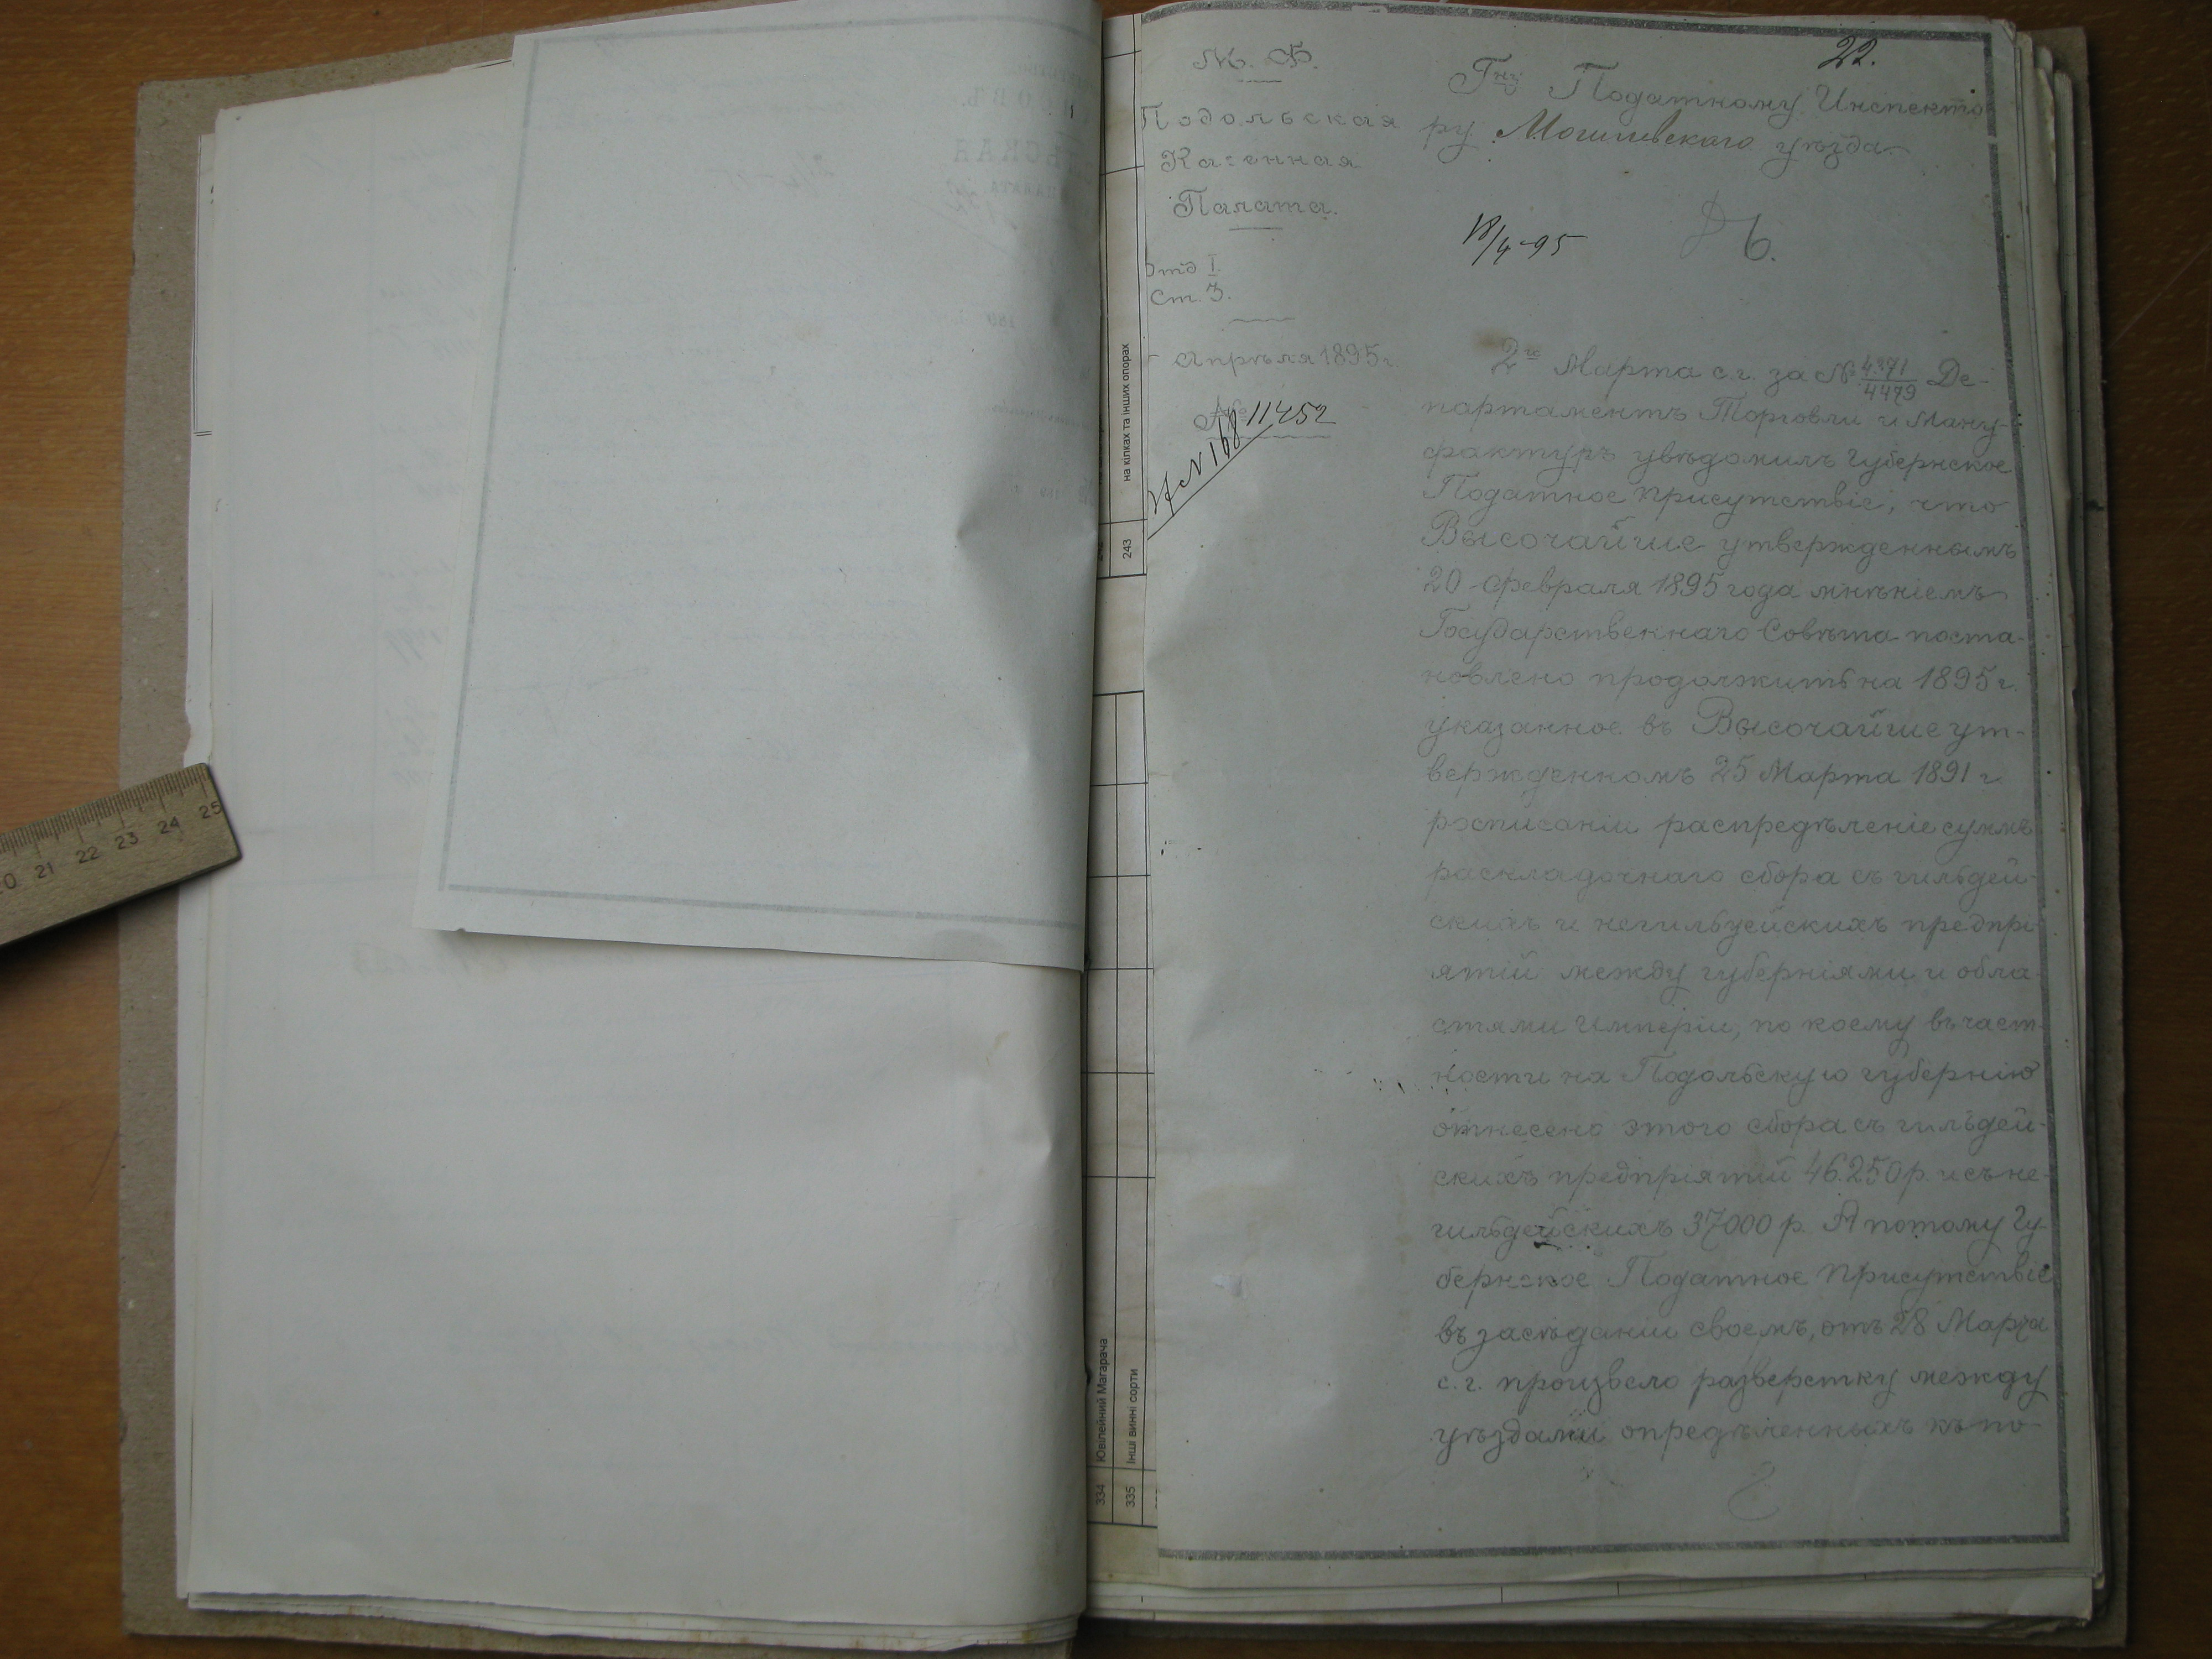 22.
М. Ф.
Подольская
Казенная
Палата.
Отд I.
Ст. 3.
Апрѣля 1895 г.
№ 11452
№ 168
Гну Податному Инспекто
ру Могилевскаго уѣзда
18/4 95
2го Марта с.г. за № 4371/4479 Де-
партаментъ Торговли и Ману-
фактуръ увѣдомилъ Губернское
Податное Присутствіе, что
Высочайше утвержденнымъ
20 февраля 1895 года мнѣніемъ
Государственнаго Совѣта поста-
новлено продолжить на 1895 г.
указанное въ Высочайше ут-
вержденномъ 25 Марта 1891 г
росписаніи распредѣленіе суммъ
раскладочнаго сбора съ гильдей-
скихъ и негильдейскихъ предпрі
ятій между губерніями и обла
стями Имперіи, по коему въ част-
ности на Подольскую губернію
отнесено этого сбора съ гильдей-
скихъ предпріятій 46.250 р. и съ не-
гильдейскихъ 37000 р. А потому Гу-
бернское Податное Присутствіе
въ засѣданіи своемъ, отъ 28 Марта
с. г. произвело разверстку между
уѣздами опредѣленныхъ къ по-
на кілках та інших опорах
243
334 Ювілейний Магарача
335 Інші винні сорти
20 21 22 23 24 25